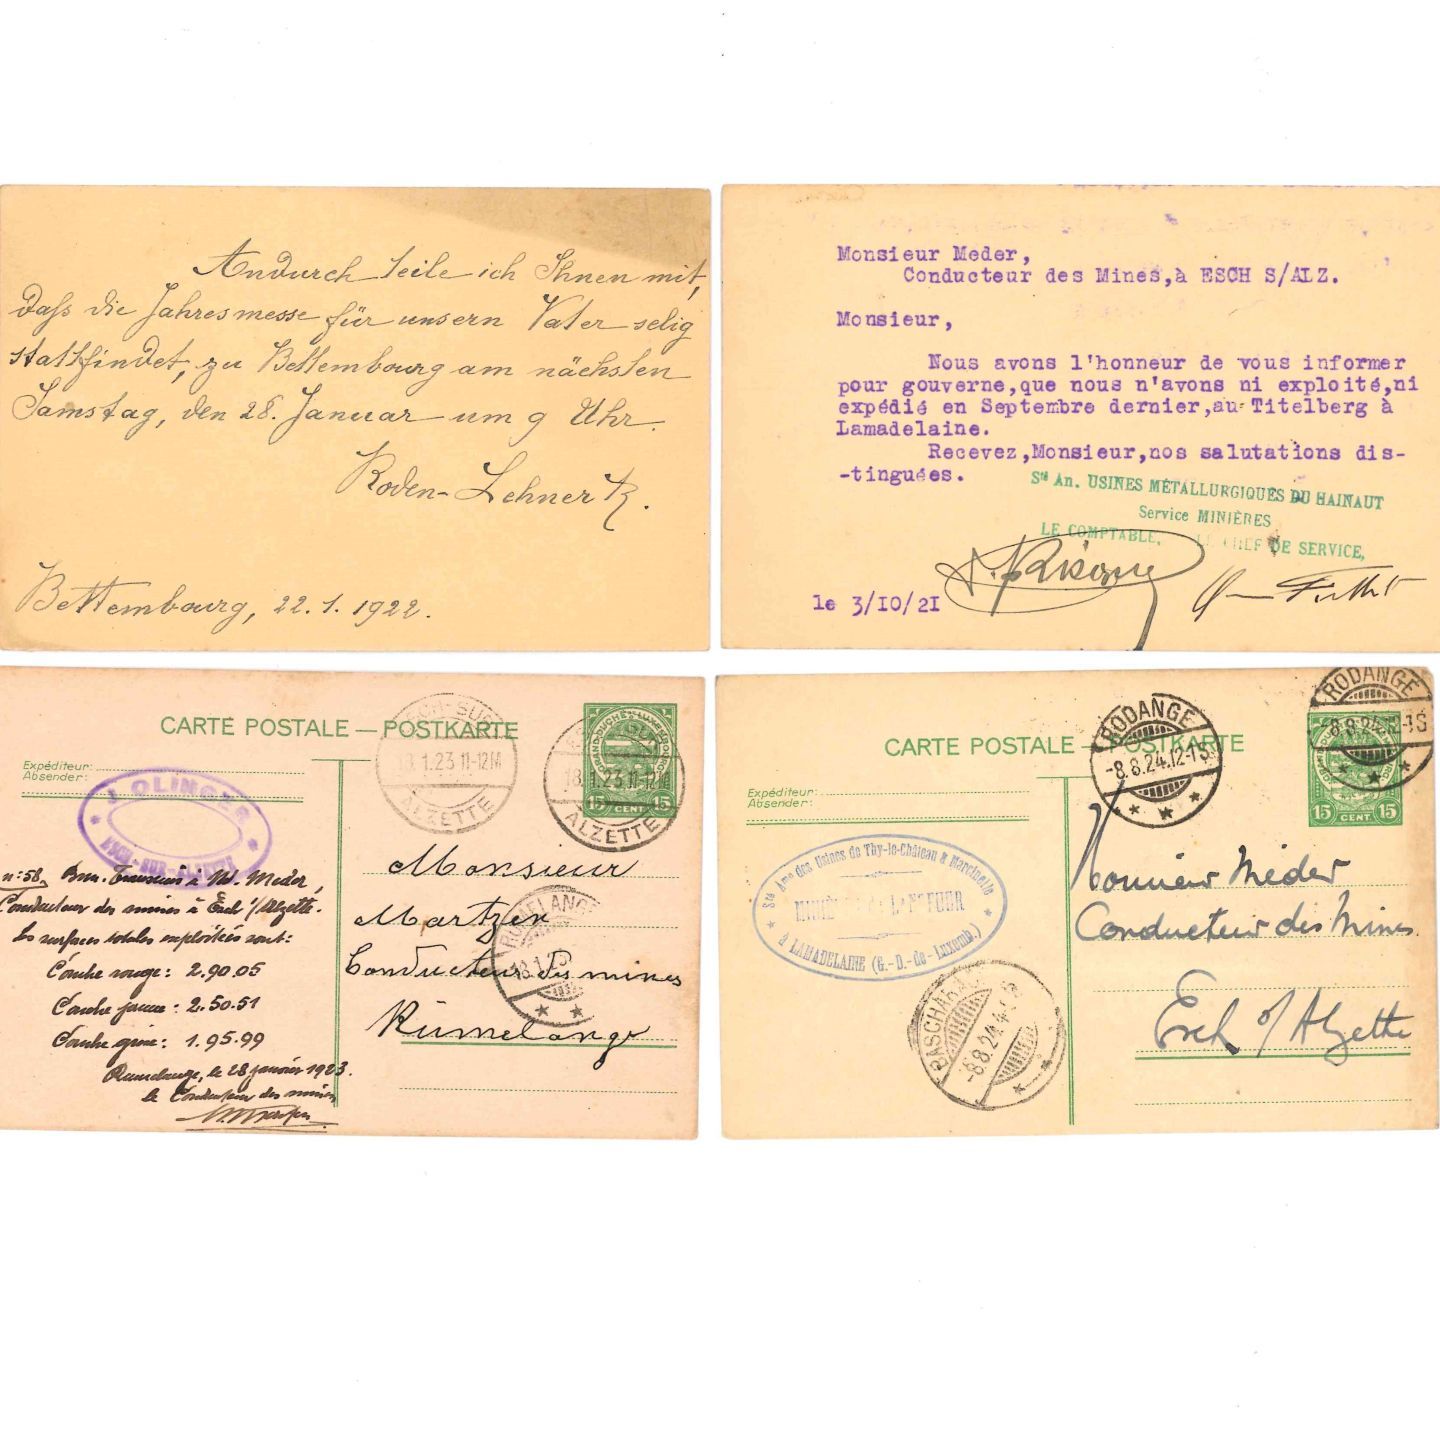 Andurch teile ich Ihnen mit,
daß die Jahresmesse für unsern Vater selig
stattfindet, zu Bettembourg am nächsten
Samstag, den 28. Januar um 9 Uhr.
Roden-Lehner
Bettembourg, 22.1.1922.
Monsieur Meder,
Conducteur des Mines,à ESCH S/ALZ.
Monsieur,
Nous avons l'honneur de vous informer
pour gouverne,que nous n'avons ni exploité,ni
expédié en Septembre dernier,au Titelberg à
Lamadelaine.
Recevez,Monsieur,nos salutations dis-
-tinguées.
Sté An. USINES MÉTALLURGIQUES DU HAINAUT
Service MINIÈRES
LE COMPTABLE, LE CHEF DE SERVICE,
le 3/10/21
CARTE POSTALE — POSTKARTE
Expéditeur:
Absender:
J OLINGER
ESCH-SUR-ALZETTE
ESCH-SUR
18.1.23 11-12M
ALZETTE
18.1.23 11-12M
ALZETTE
GRAND-DUCHÉ LUXEMBOURG
15 CENT. 15
n:58 Transmis à M. Meder,
Conducteur des mines à Esch s/Alzette.
les surfaces totales exploitées sont:
Couche rouge: 2.90.05
Couche jaune: 2.50.51
Couche grise: 1.95.99
Rumelange, le 28 janvier 1923.
le Conducteur des mines
Monsieur
Martzen
Conducteur des mines
Rumelange
RUMELANGE
18.1.23
CARTE POSTALE — POSTKARTE
Expéditeur:
Absender:
RODANGE
-8.8.24.12-1S
RODANGE
-8.8.24.12-1S
15 CENT. 15
Sté Ame des Usines de Thy-le-Château & Marcinelle
à LAMADELAINE (G.-D.-de-Luxemb.)
Monsieur Méder
Conducteur des Mines
Esch s/Alzette
BASCHARAGE
-8.8.24.4-5S